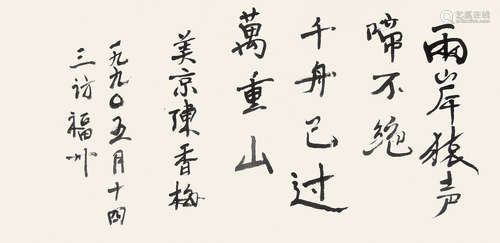 兩岸猿声
啼不絶
千舟已过
萬重山
美京陳香梅
一九九〇五月十四
三访福州